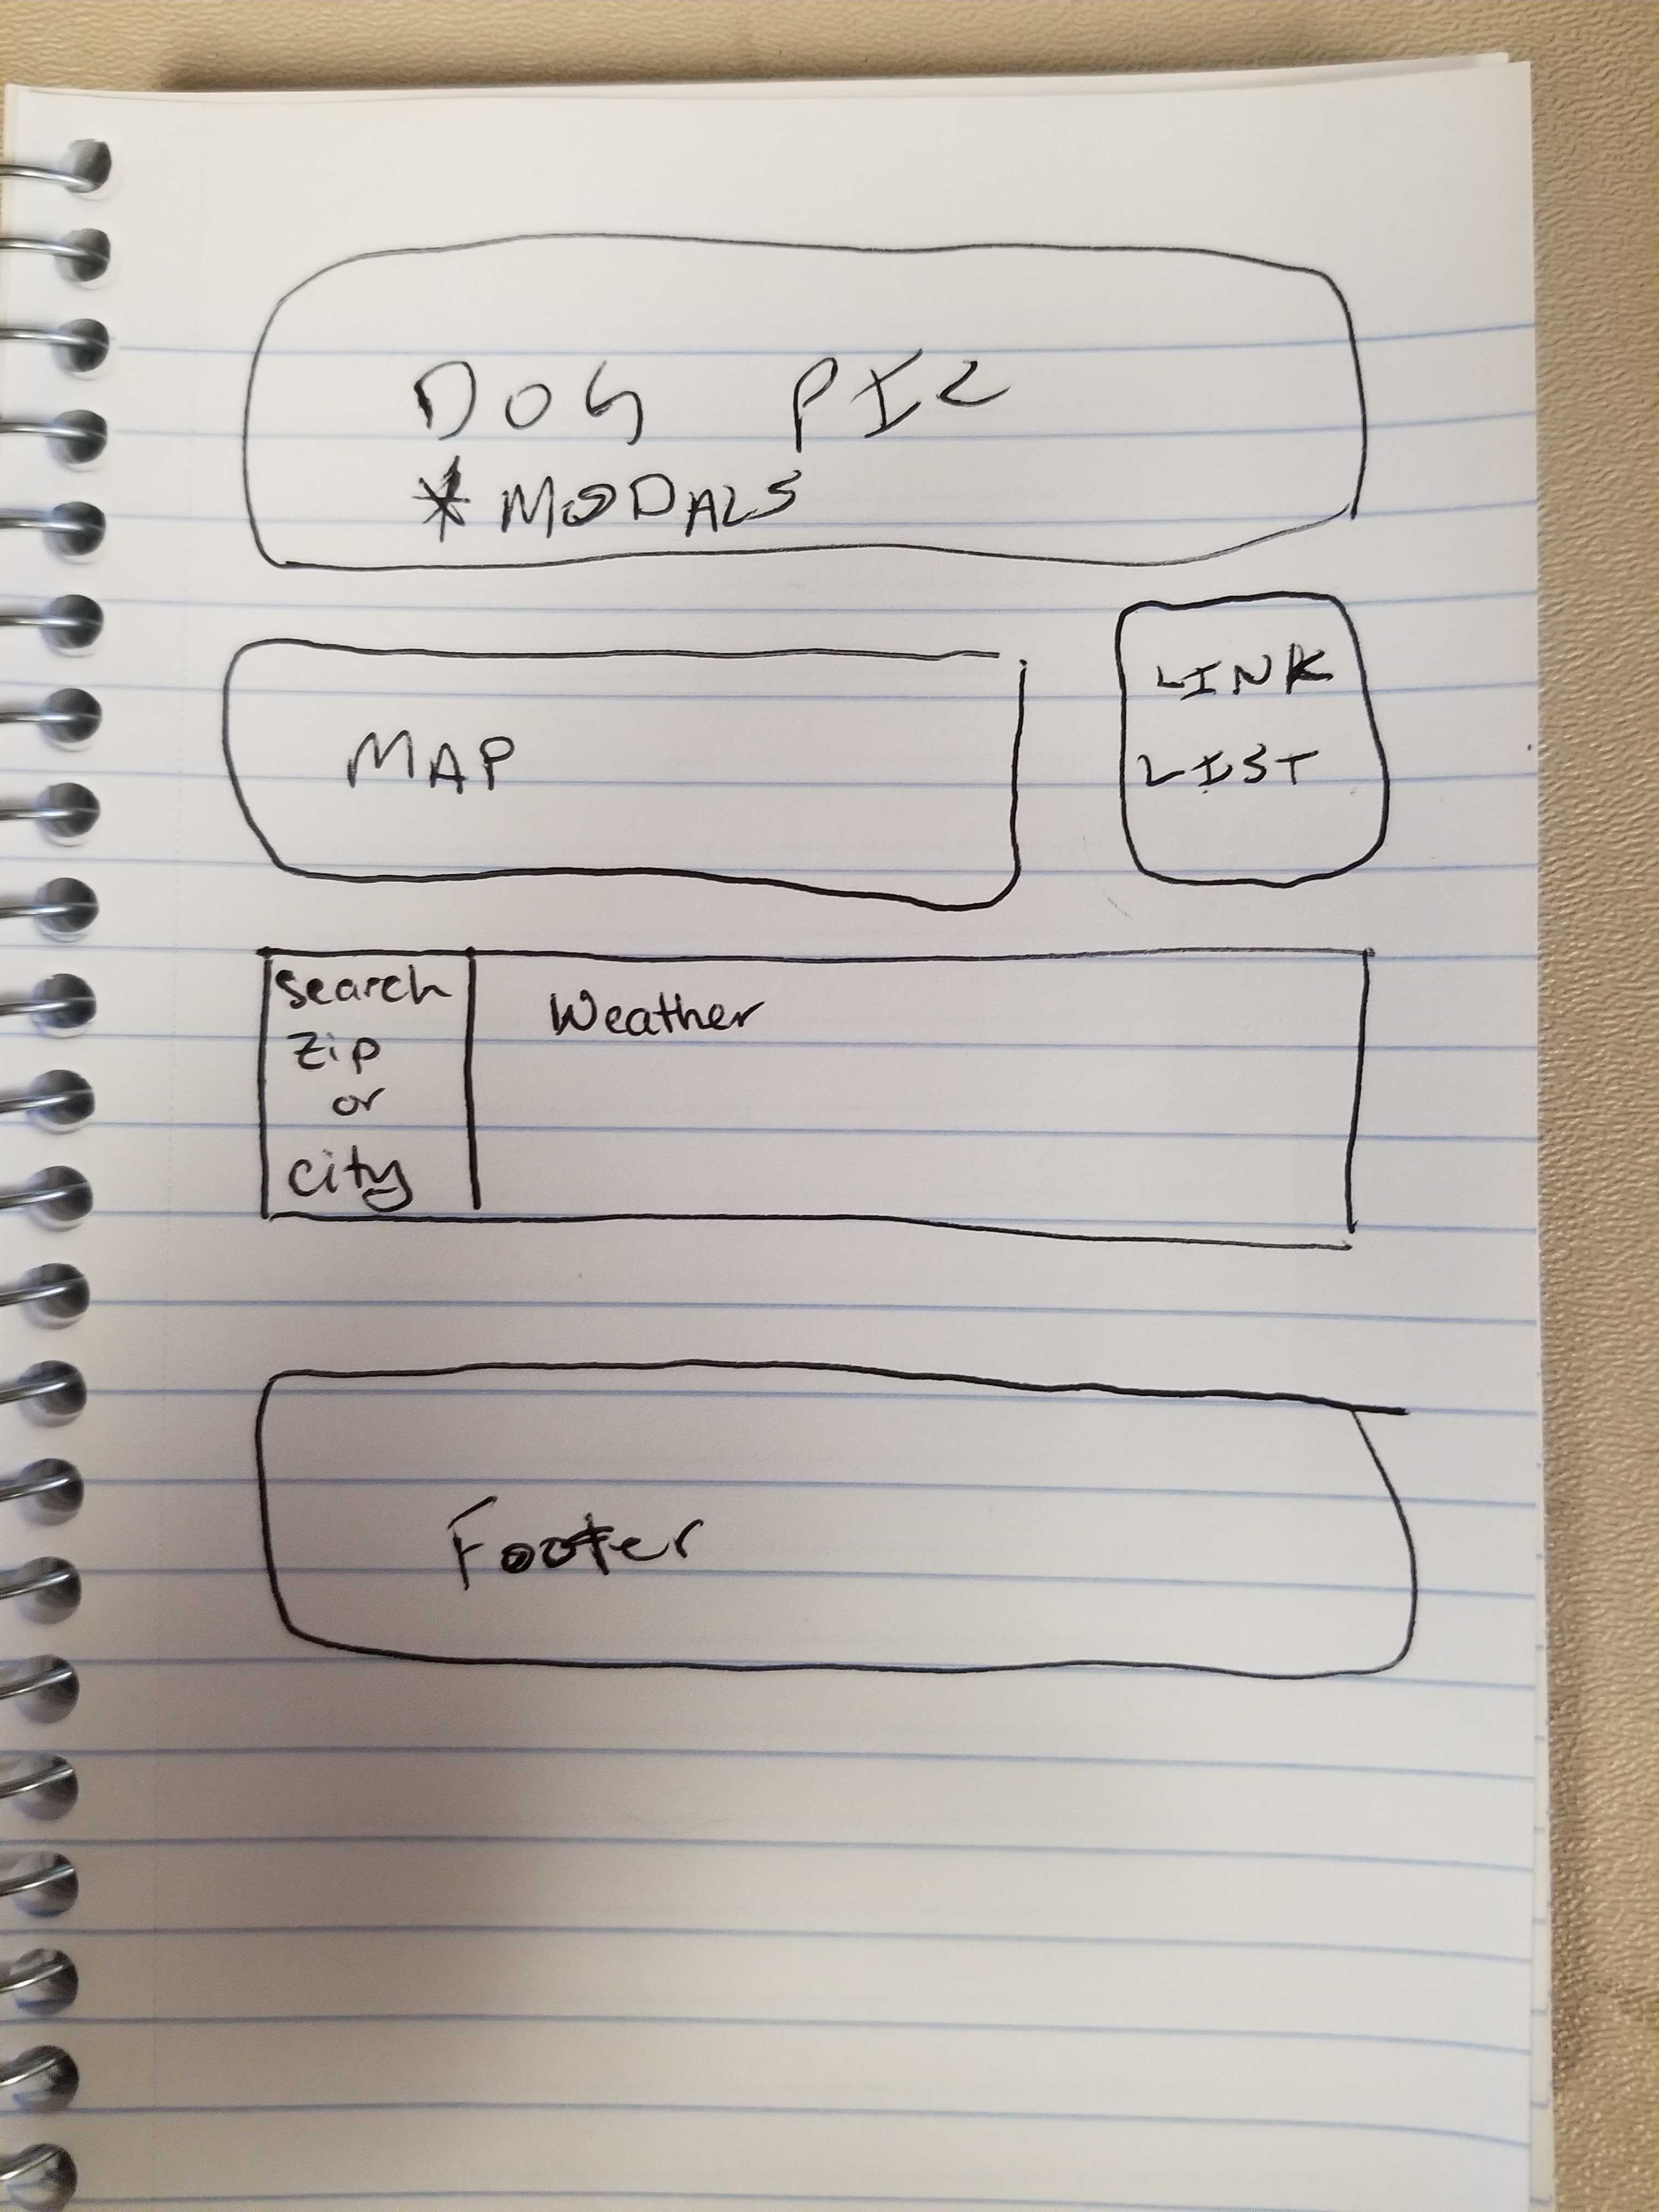 DOG PIC
* MODALS
MAP
LINK
LIST
Search
Zip
or
City
Weather
Footer